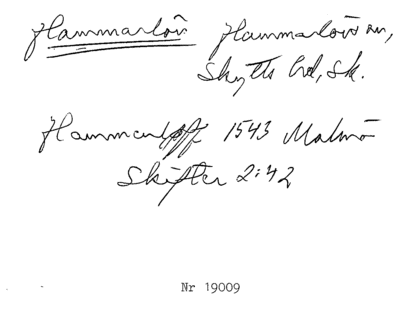 Hammarlöv Hammarlövs sn,
Skytts hd, Sk.
1543 Malmö
Skifter 2:42
Nr 19009